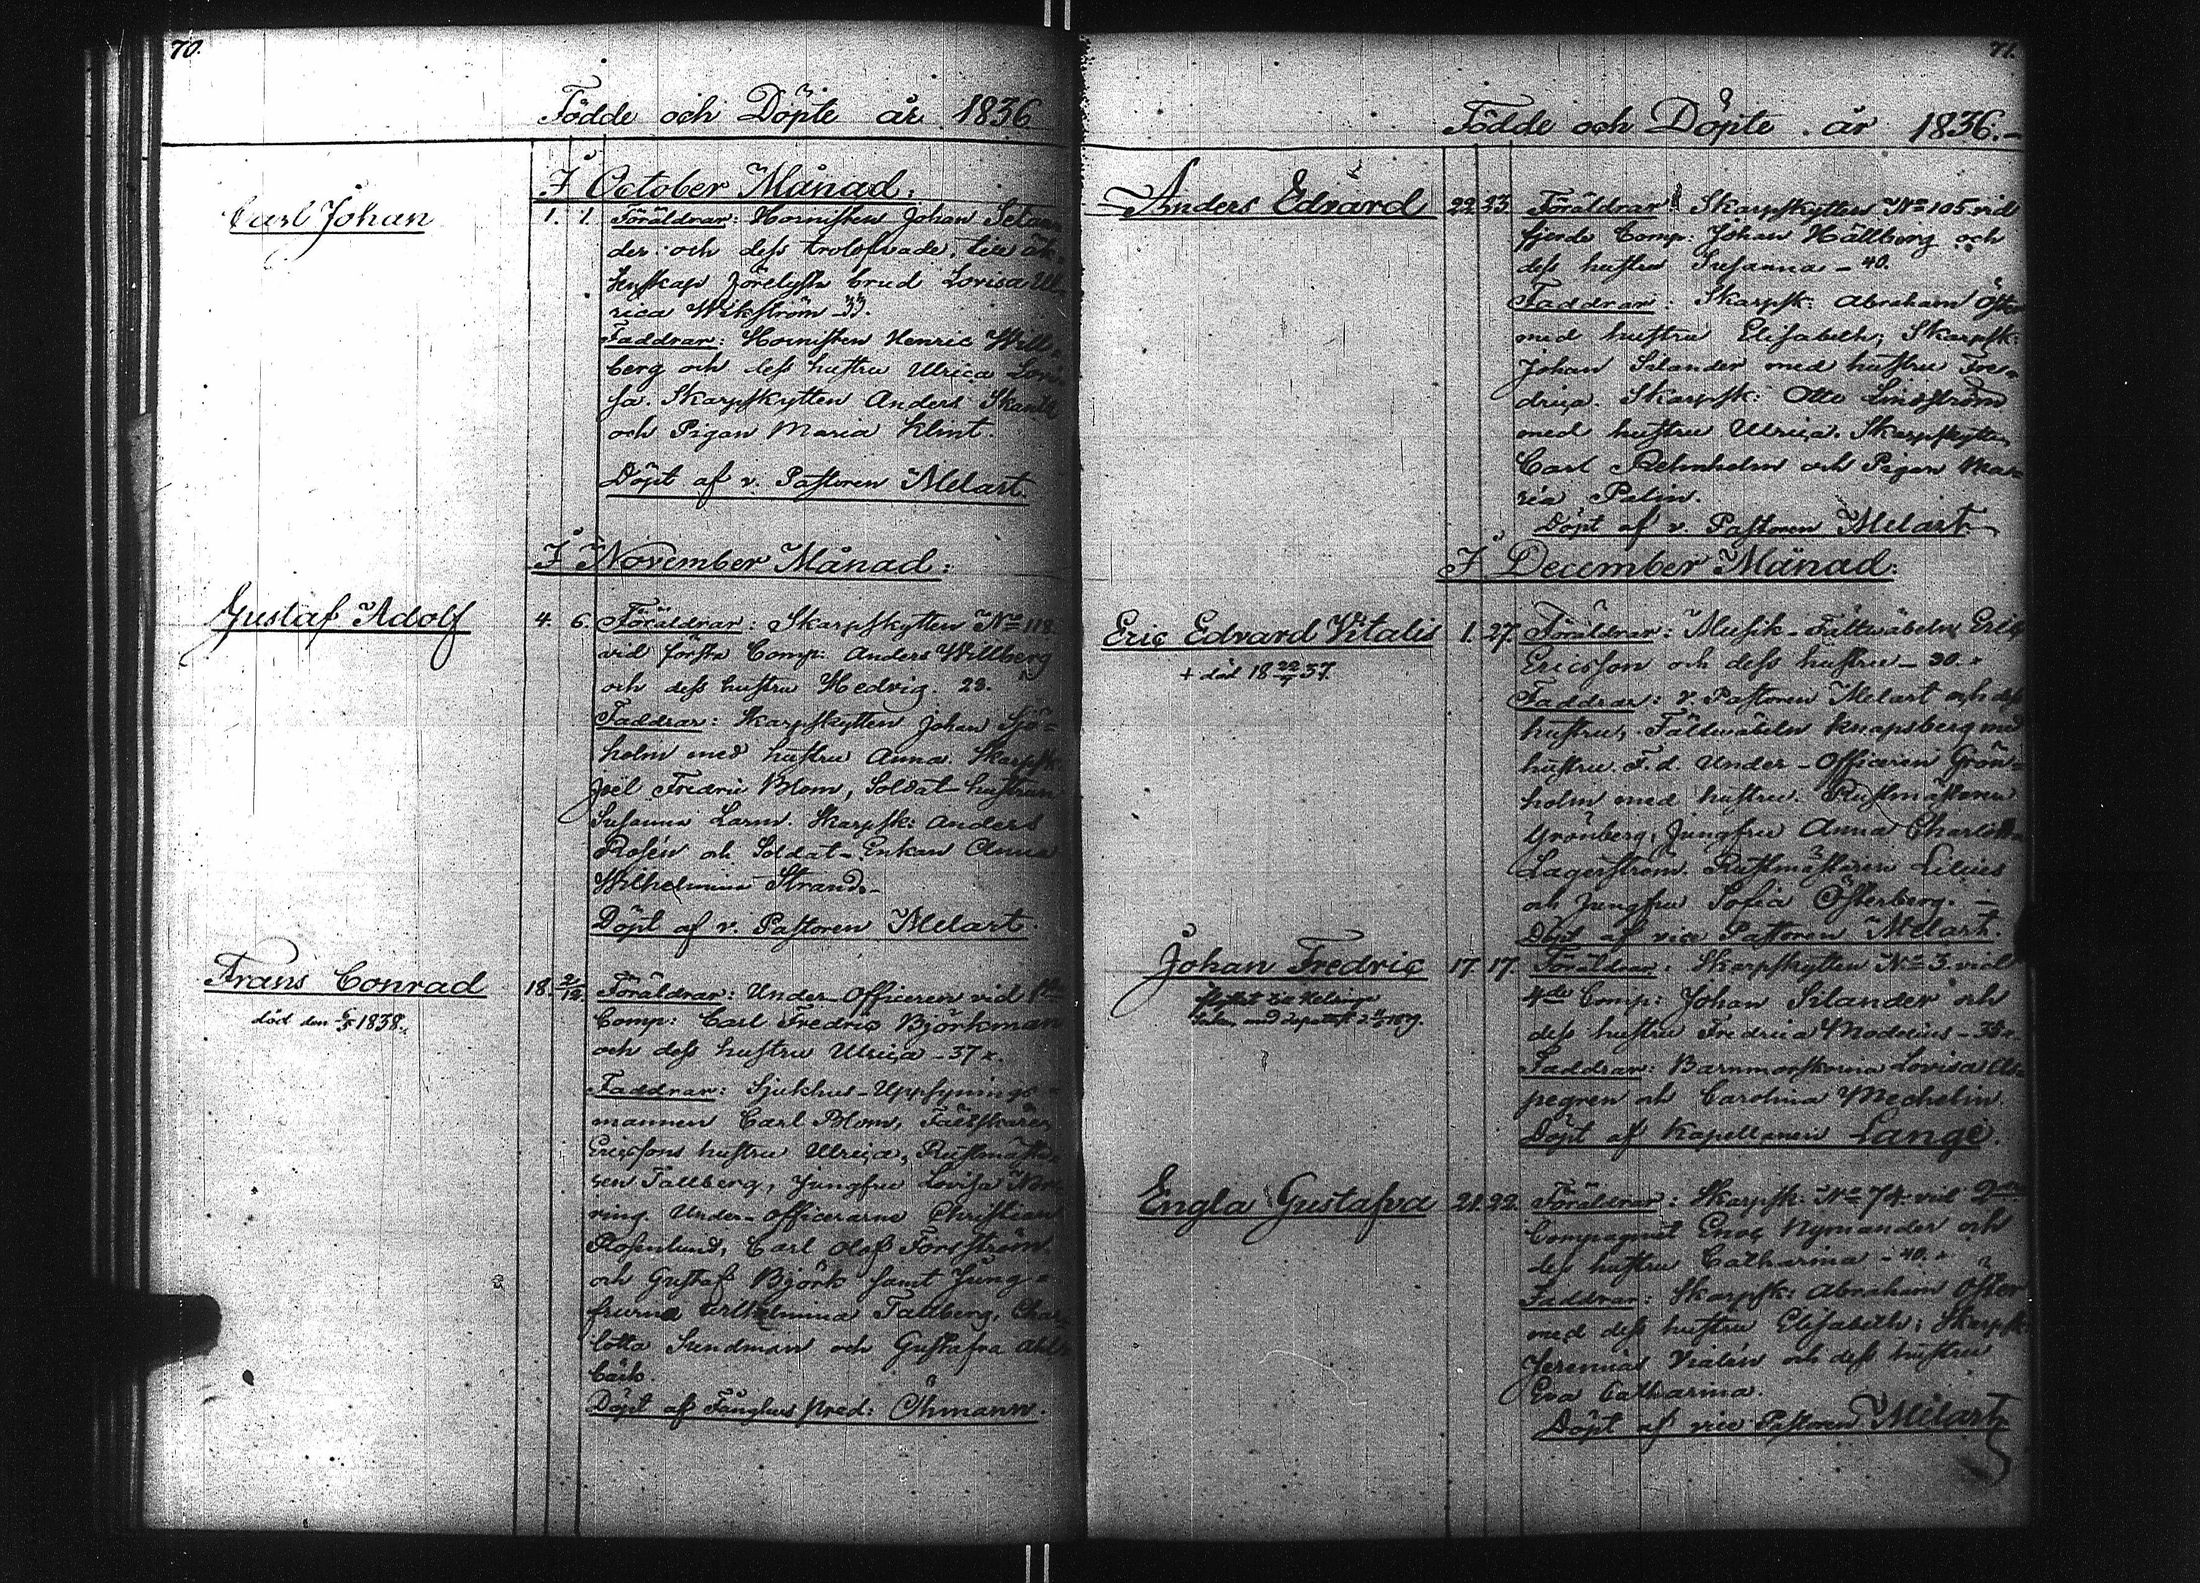 70.
Födde och Döpte år 1836
I October Månad:
Carl Johan
1. 1. Föräldrar: Hornisten Johan Selan
der och dess trolofvade, till äk-
tenskap förelysta brud Lovisa Ul-
rica Wikström - 33.
Faddrar: Hornisten Henric Will-
berg och dess hustru Ulrica Lovi
sa. Skarpskytten Anders
och Pigan Maria Klint.
Döpt af v. Pastoren Melart.
I November Månad:
Gustaf Adolf
4. 6. Föräldrar: Skarpskytten No 118.
vid första Comp: Anders Willberg
och dess hustru Hedvig. 23.
Faddrar: Skarpskytten Johan Sjö-
holm med hustru Anna. Skarpsk:
Joël Fredric Blom, Soldat-hustrun
Susanna Larm. Skarpsk: Anders
Rosén och Soldat-Enkan Anna
Wilhelmina Strand.-
Döpt af v. Pastoren Melart.
Frans Conrad
död den 6/5 1838.
18. 2/12. Föräldrar: Under-Officeren vid 1sta
Comp: Carl Fredric Björkman
och dess hustru Ulrica - 37.
Faddrar: Sjukhus-Uppsynings-
mannen Carl Blom, Fältskären
Ericssons hustru Ulrica, Rustmästa-
ren Tallberg, Jungfru Lovisa Nor
ring. Under-officerarne Christian
Rosenlund, Carl Olof Forsström
och Gustaf Björk samt Jung-
frurna Wilhelmina Tallberg, Char-
lotta Sundman och Gustafva Ahl-
bäck.
Döpt af Fånghus pred: Öhmann.
71.
Födde och Döpte år 1836.-
Anders Edvard
22. 23. Föräldrar: Skarpskytten No 105 vid
fjerde Comp: Johan Hällberg och
dess hustru Susanna - 40.
Faddrar: Skarpsk: Abraham Öster
med hustru Elisabeth, Skarpsk:
Johan Selander med hustru Fre-
drica. Skarpsk: Otto Lindström
med hustru Ulrica. Skarpskytten
Carl Rehnholm och Pigan Ma-
ria Palin.
Döpt af v. Pastoren Melart
I December Månad:
Eric Edvard Vitalis
+ död 18 22/7 37.
1. 27. Föräldrar: Musik-Fältwäbeln Eric
Ericsson och dess hustru - 30.
Faddrar: v. Pastoren Melart och dess
hustru, Fältwäbeln Knapsberg med
hustru. F.d. Under-Officeren Grön-
holm med hustru. Rustmästaren
Grönberg, Jungfru Anna Charlotta
Lagerström. Rustmästaren Lilius
och Jungfru Sofia Österberg. -
Döpt af vice Pastoren Melart.
Johan Fredric
flyttat till Helsing-
17. 17. Föräldrar: Skarpskytten No 3. vid
4de Comp: Johan Selander och
dess hustru Fredrica Modenius - 38.
Faddrar: Barnmorskorna Lovisa As-
pegren och Carolina Mechelin.
Döpt af Kapellanen Lange.
Engla Gustafva
21. 22. Föräldrar: Skarpsk. No 74 vid 2dra
Compagniet Enoc Nymander och
dess hustru Catharina - 40.
Faddrar: Skarpsk: Abraham Öster
med dess hustru Elisabeth; Skarpsk:
Jeremias Vialén och dess hustru
Eva Catharina.
Döpt af vice Pastoren Melart